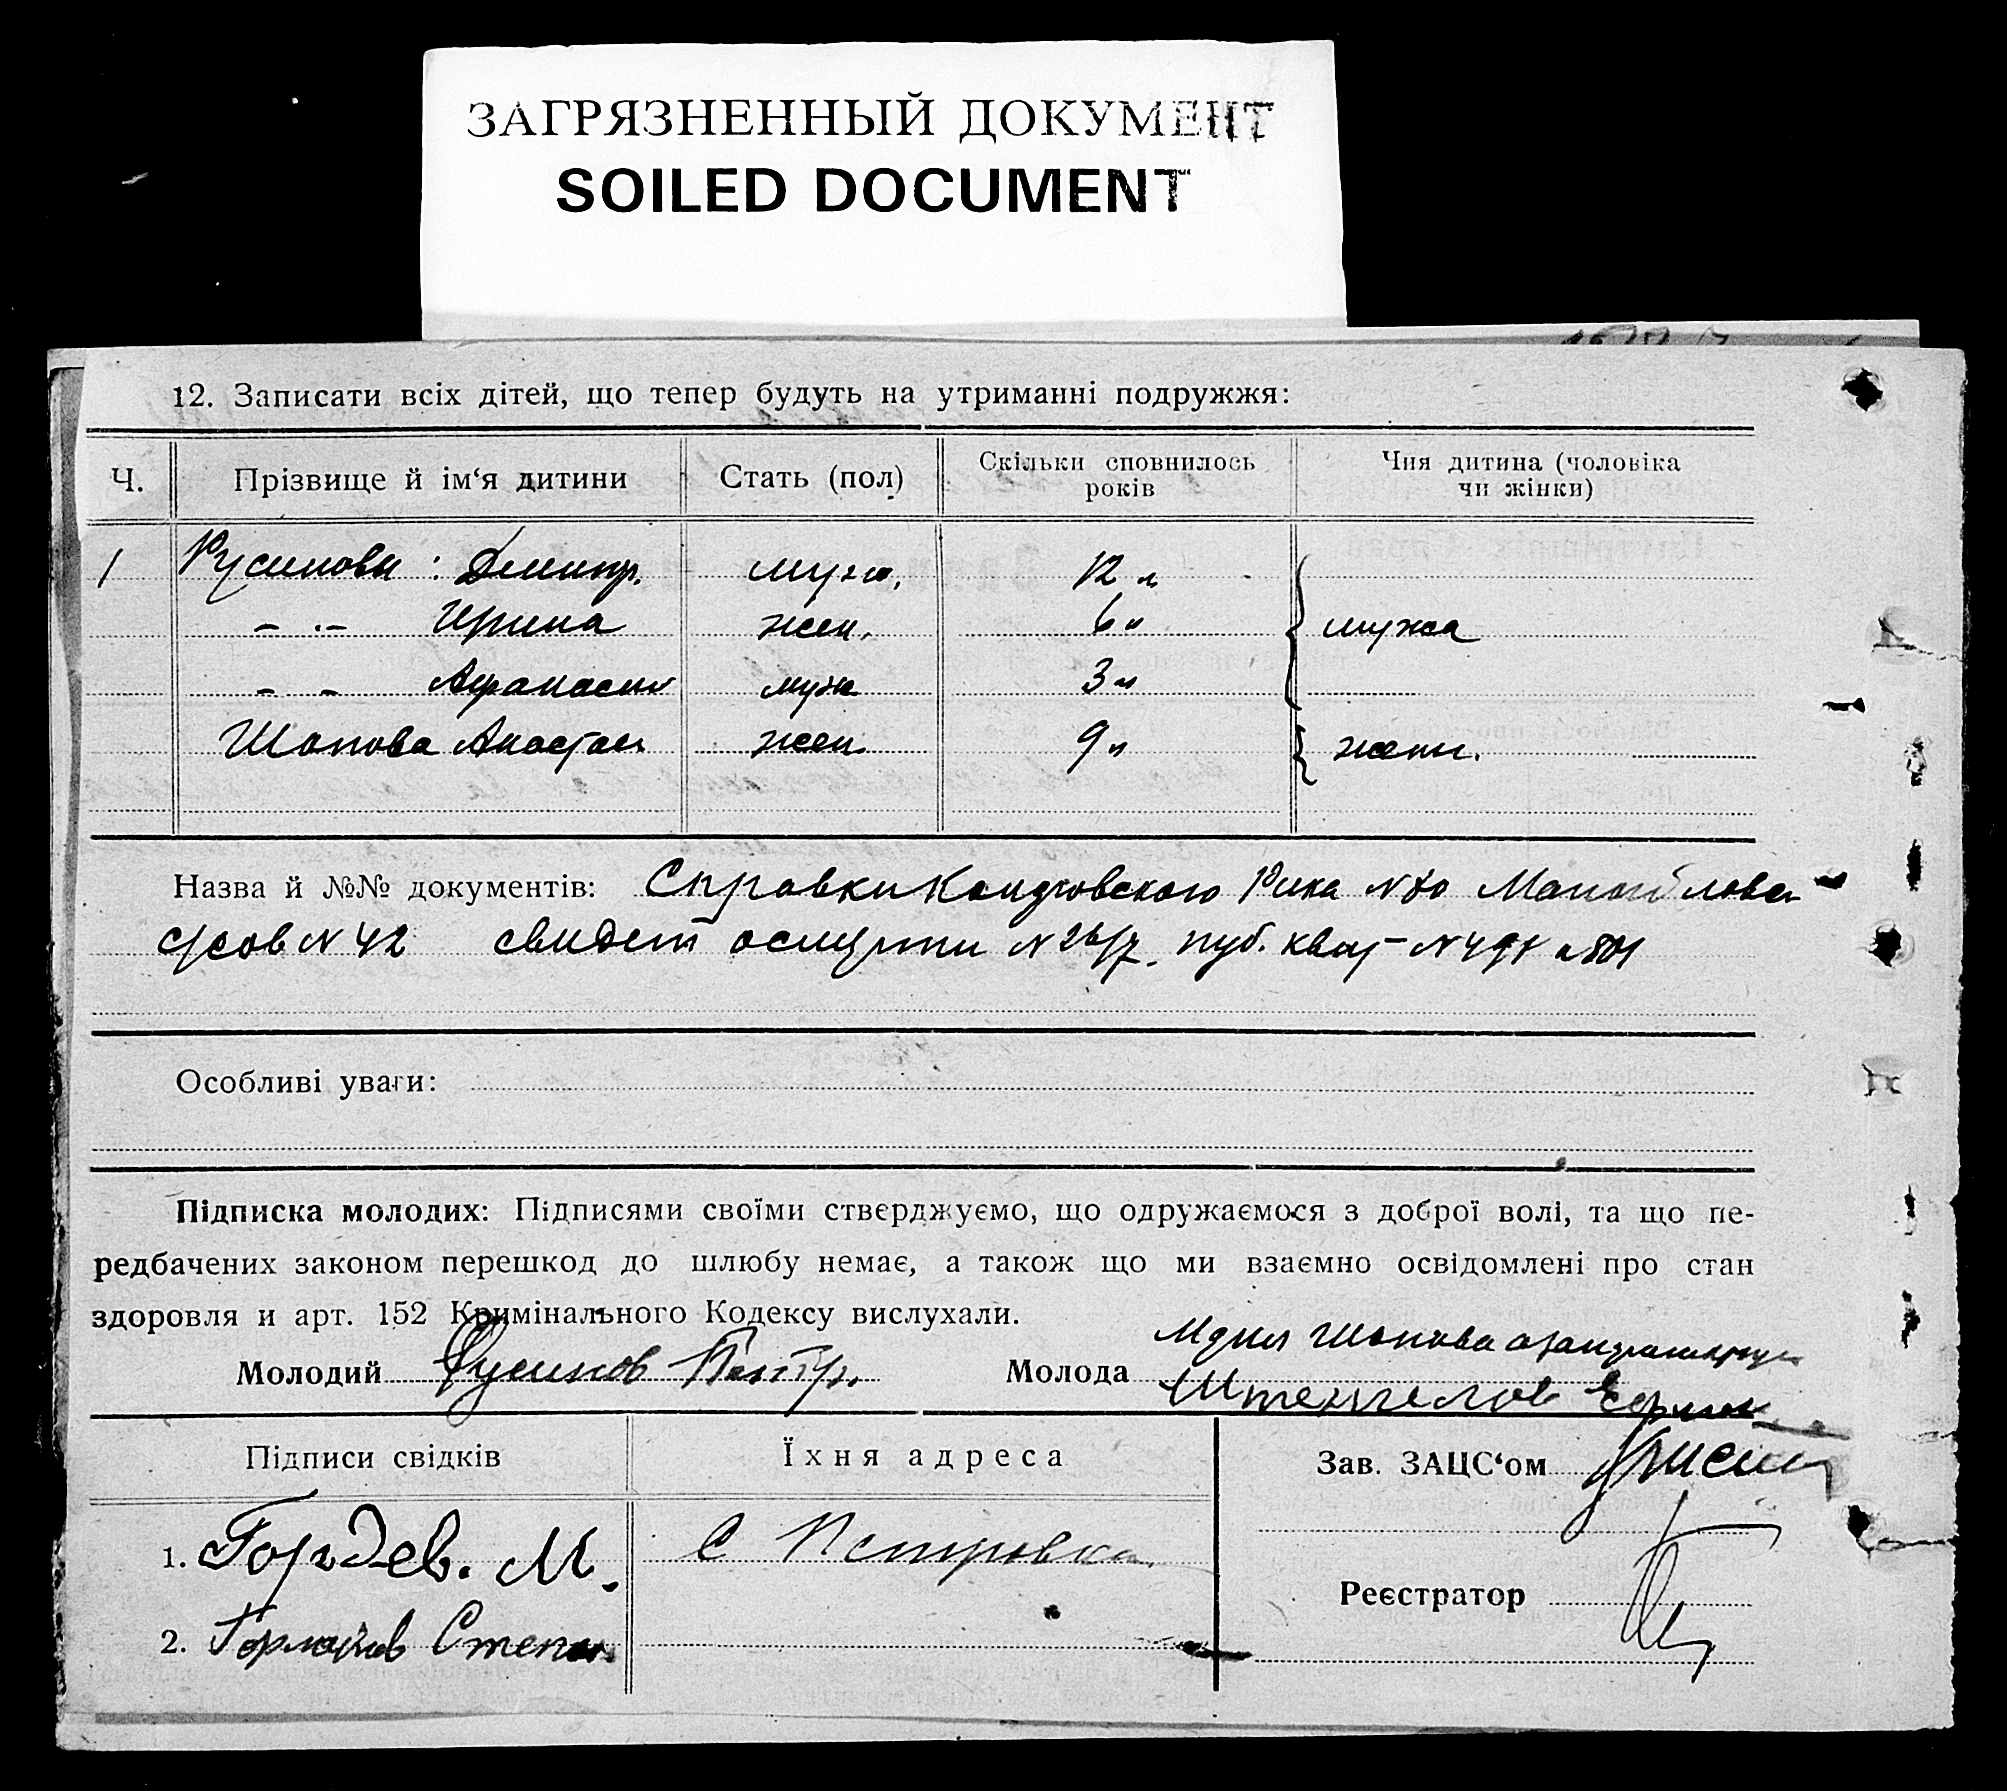 ЗАГРЯЗНЕННЫЙ ДОКУМЕНТ
SOILED DOCUMENT
12. Записати всіх дітей, що тепер будуть на утриманні подружжя:
Ч. Прізвище й ім‘я дитини Стать (пол) Скільки сповнилось років Чия дитина (чоловіка чи жінки)
1 Русиновы: Димитр. муж. 12 л
– „ – Ирина жен. 6 „ мужа
– – Афанасий муж 3 „
Шопова Анастас жен. 9 „ жены.
Назва й №№ документів: Справки Рика N 80
N 42 свидет N 26/7. квит N 491 и 501
Особливі уваги:
Підписка молодих: Підписями своїми стверджуємо, що одружаємося з доброї волі, та що пе-
редбачених законом перешкод до шлюбу немає, а також що ми взаємно освідомлені про стан
здоровля и арт. 152 Кримінального Кодексу вислухали.
Молодий Русинов Петр. Молода Шопова
Підписи свідків Їхня адреса Зав. ЗАЦС‘ом
1. Гордев. М. С Петровка
Реєстратор
2. Степан